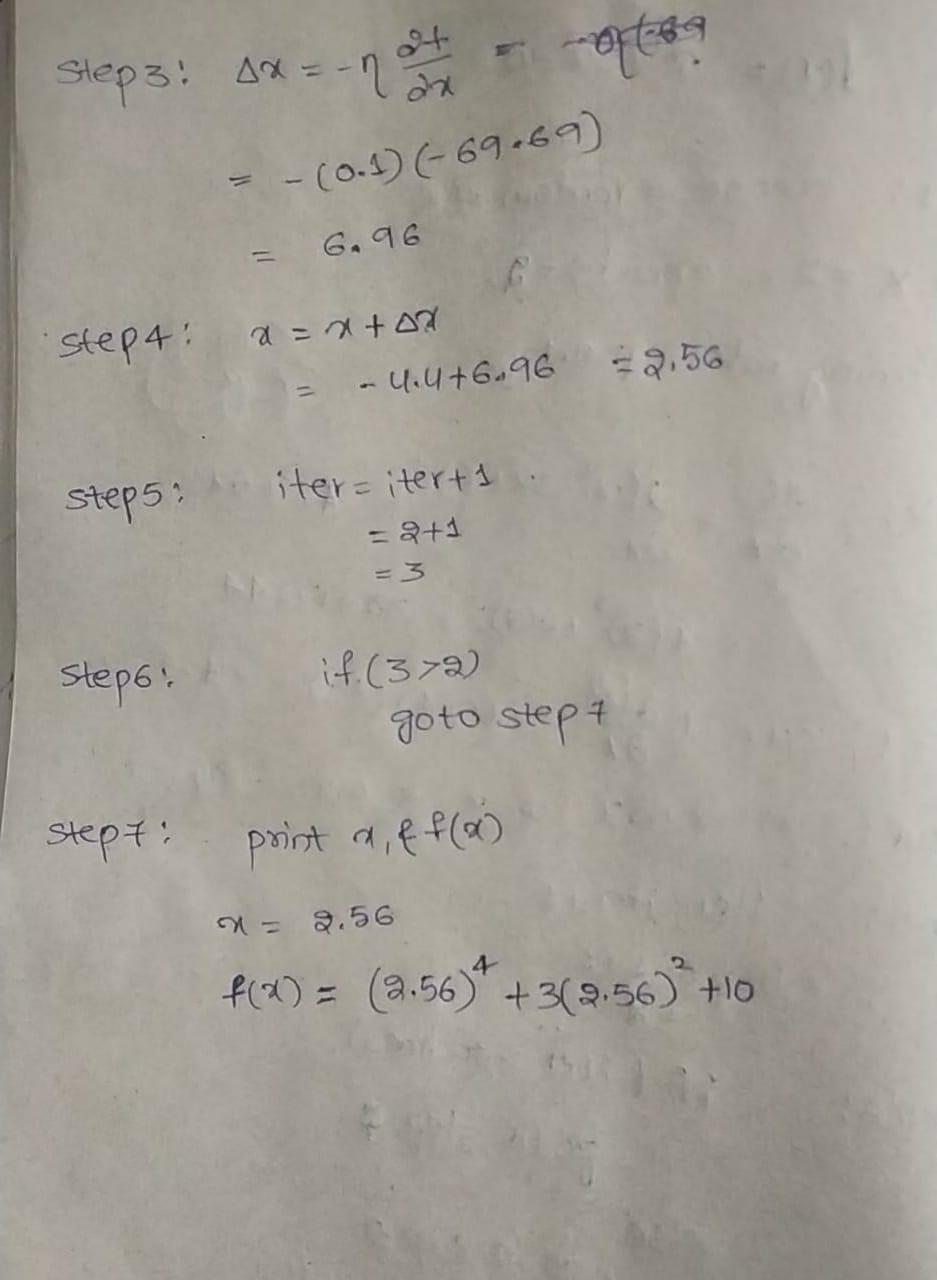 Step3: Δx = -η ∂f/∂x =
= -(0.1)(-69.69)
= 6.96
step4: x = x + Δx
= -4.4+6.96 = 2.56
step5: iter = iter+1
= 2+1
= 3
step6: if (3>2)
goto step 7
step7: print x, & f(x)
x = 2.56
f(x) = (2.56)⁴ + 3(2.56)² +10